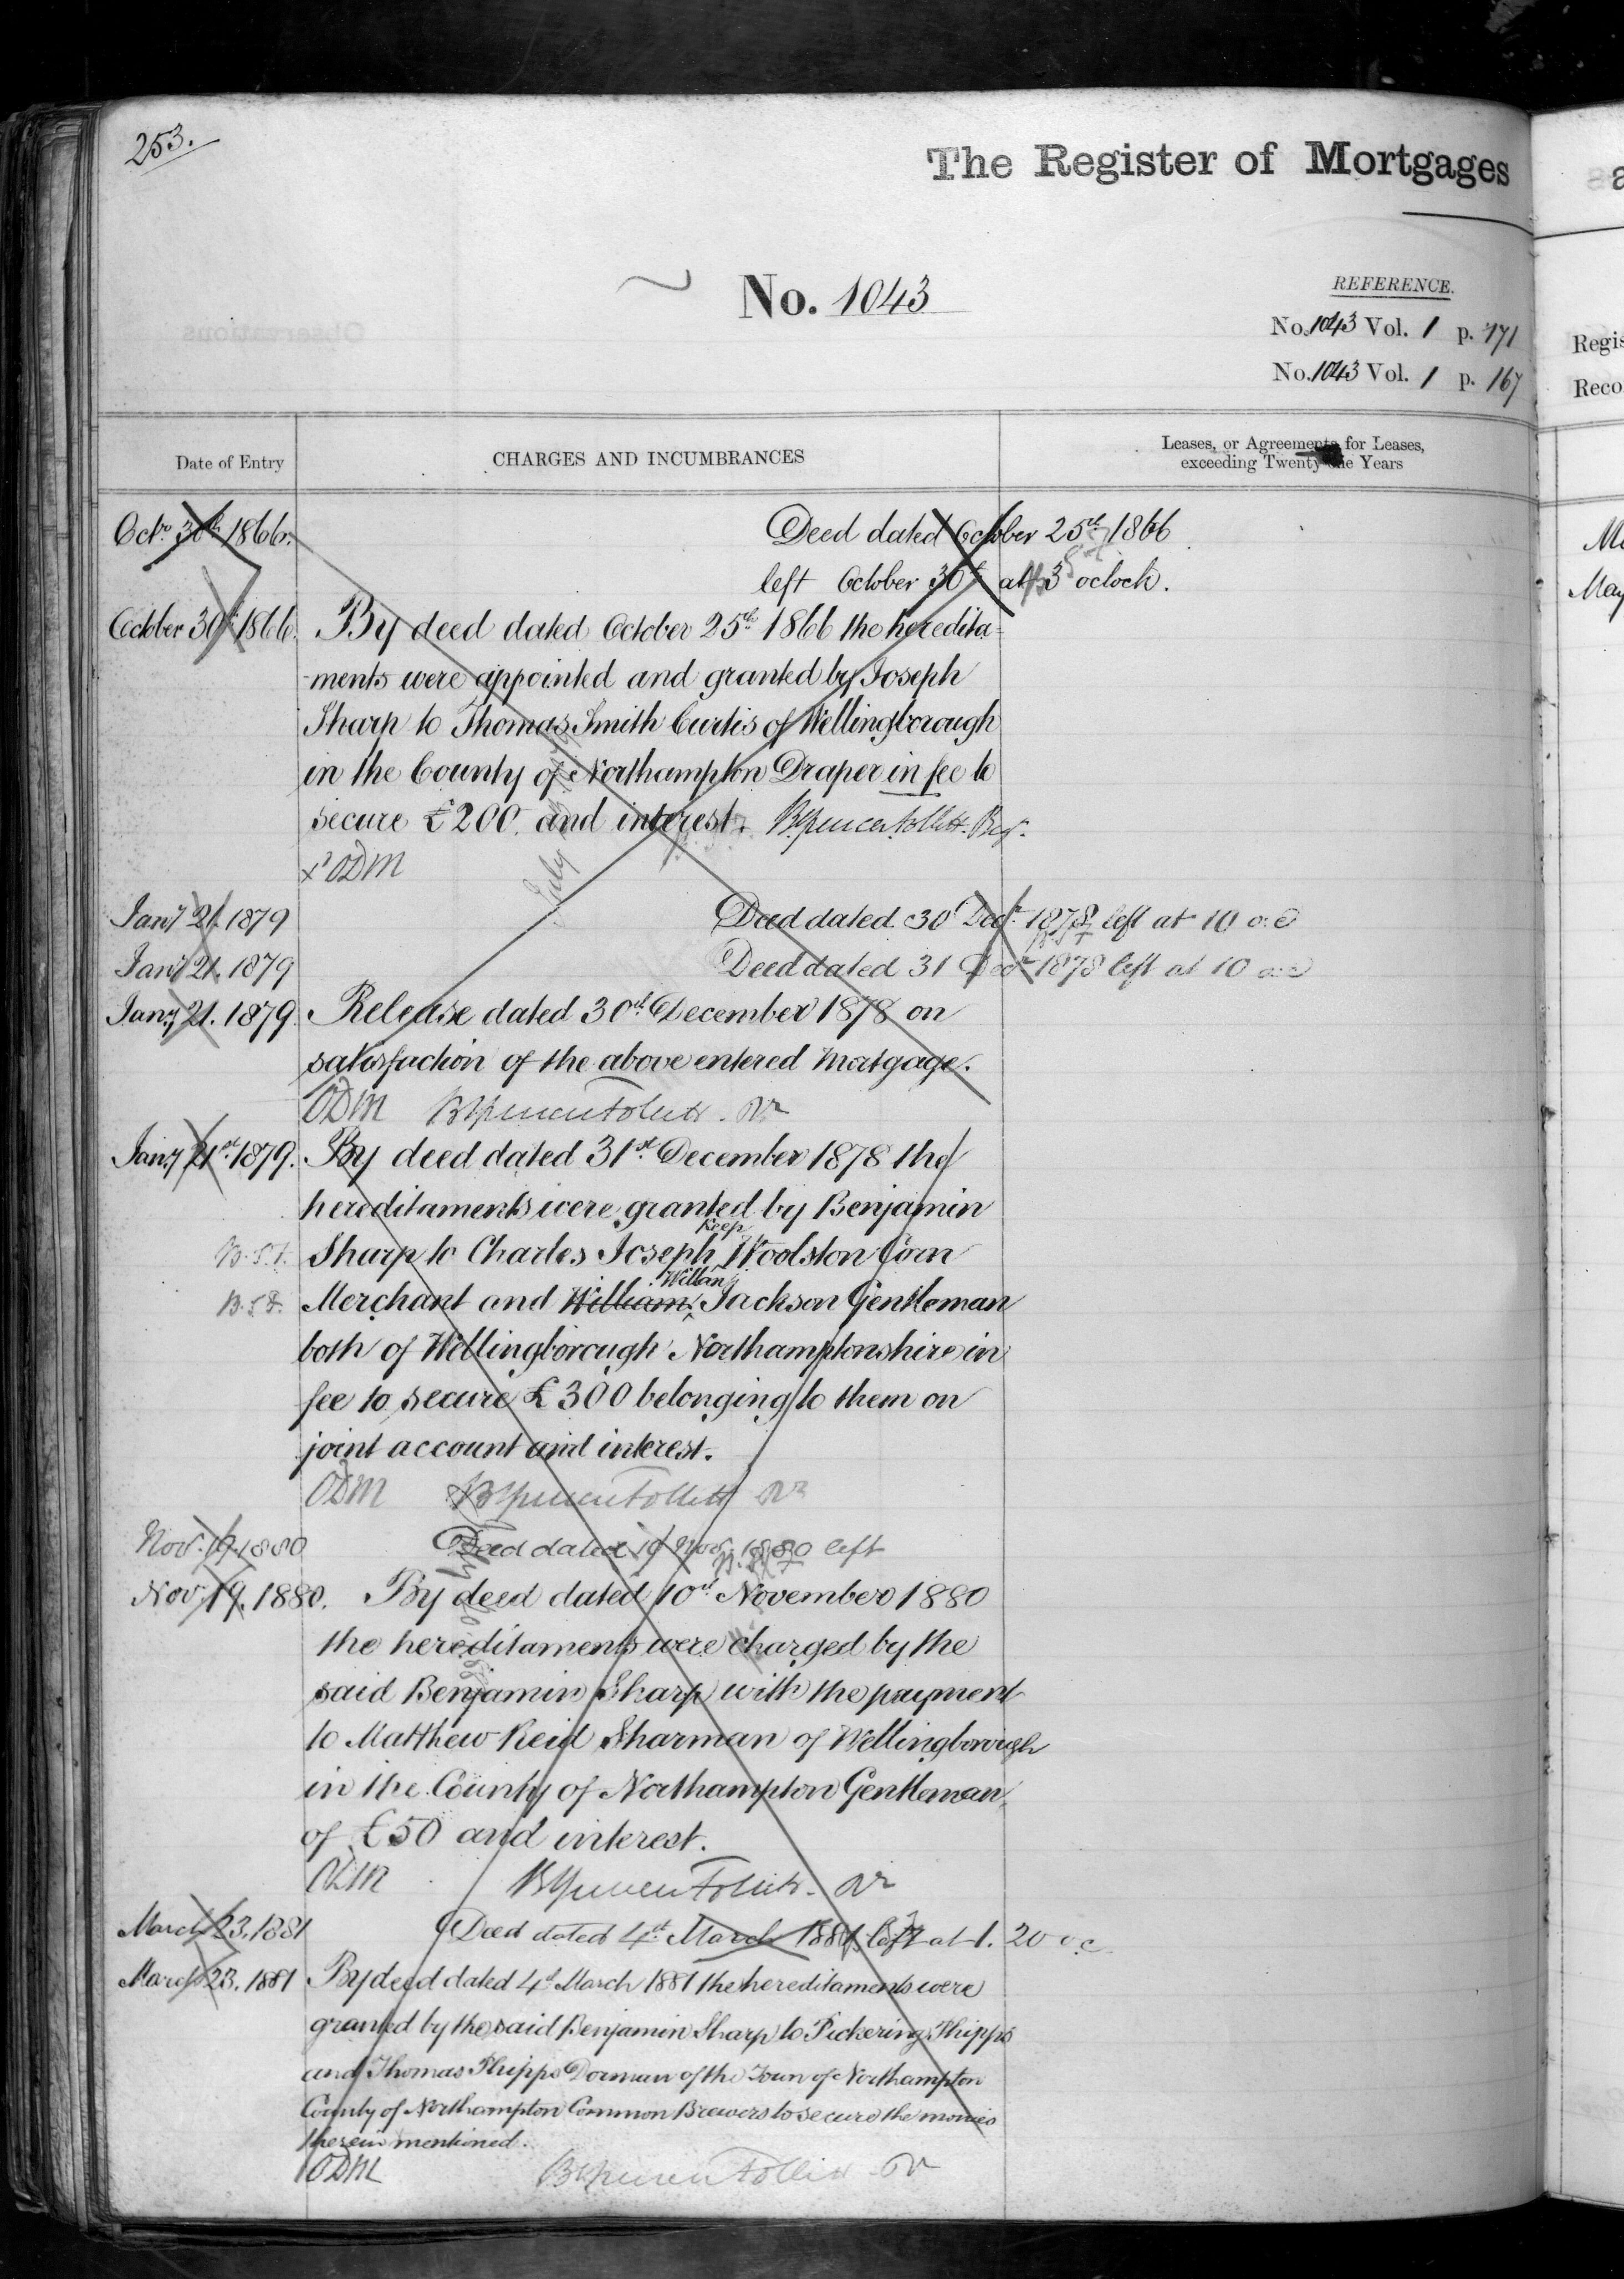 253.
The Register of Mortgages
No. 1043
REFERENCE.
No. 1043 Vol. 1 p. 171
No. 1043 Vol. 1 p. 167
Regis
Reco
Date of Entry
CHARGES AND INCUMBRANCES
Leases, or Agreements for Leases,
exceeding Twenty-one Years
Octr. 30th 1866. Deed dated October 25th 1866
left October 30th at 3 oclock.
May
October 30th 1866. By deed dated October 25th 1866 the heredita-
-ments were appointed and granted by Joseph
Sharp to Thomas Smith Curtis of Wellingborough
in the County of Northampton Draper in fee to
secure £200. and interest. BSpencer Follett. Reg.
ODM
July
Jany 21. 1879 Deed dated 30 Decr. 1878 left at 10 o.c
Jany 21. 1879 Deed dated 31 Decr. 1878 left at 10 o.c
Jany 21. 1879. Release dated 30th December 1878 on
satisfaction of the above entered Mortgage.
ODM BSpencer Follett.
Jany 21st 1879. By deed dated 31st December 1878 the
hereditaments were granted by Benjamin
Keep
B.S.F. Sharp to Charles Joseph Woolston Corn
Willan
B.S.F. Merchant and William Jackson Gentleman
both of Wellingborough Northamptonshire in
fee to secure £300 belonging to them on
joint account and interest.
ODM BSpencer Follett
Nov. 19. 1880 Deed dated 10 Nov. 1880 left
Nov. 19. 1880. By deed dated 10th November 1880
the hereditaments were charged by the
said Benjamin Sharp with the payment
to Matthew Reid Sharman of Wellingborough
in the County of Northampton Gentleman,
of £50 and interest.
ODM BSpencer Follett.
March 23. 1881 Deed dated 4th March 1881 left at 1. 20 o.c
March 23. 1881 By deed dated 4th March 1881 the hereditaments were
granted by the said Benjamin Sharp to Pickering Phipps
and Thomas Phipps Dorman of the Town of Northampton
County of Northampton Common Brewers to secure the monies
therein mentioned.
ODM BSpencer Follett